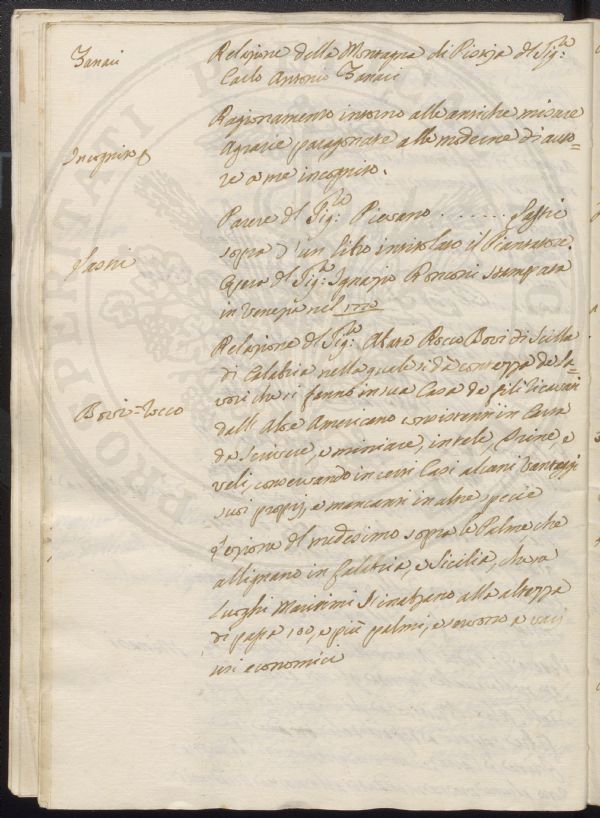 Zanaii
Relazione della Montagna di Pioraja del Sig:re
Carlo Antonio Zanaii
Incognito
Ragionamento intorno alle antiche misure
Agrarie paragonate alle moderne di auto=
re a me incognito.
Parere del Sig:re Piovano . . . . . .
sopra d'un libro intitolato il Piantatore
Opera del Sig:re Ignazio Ronconi stampata
in Venezia nel 1770
Bovi = Rocco
Relazione del Sig:re Abate Rocco Bovi di Scilla
di Calabria nella quale si dà contezza de La=
vori che si fanno in sua Casa de fili ricavati
dall Aloe Americano consistenti in Carta
da scrivere, e miniare, in tele, Trine, e
veli, conservando in certi Casi alcuni vantaggi
suoi proprj, e mancanti in altre specie
Lezione del medesimo sopra le Palme che
allignano in Calabria, e Sicilia, che ra
Luoghi Marittimi s'inalzano alla altezza
di papa 100, e più palmi, e servono a varj
usi economici
PRO PERITATI PUBLICAE